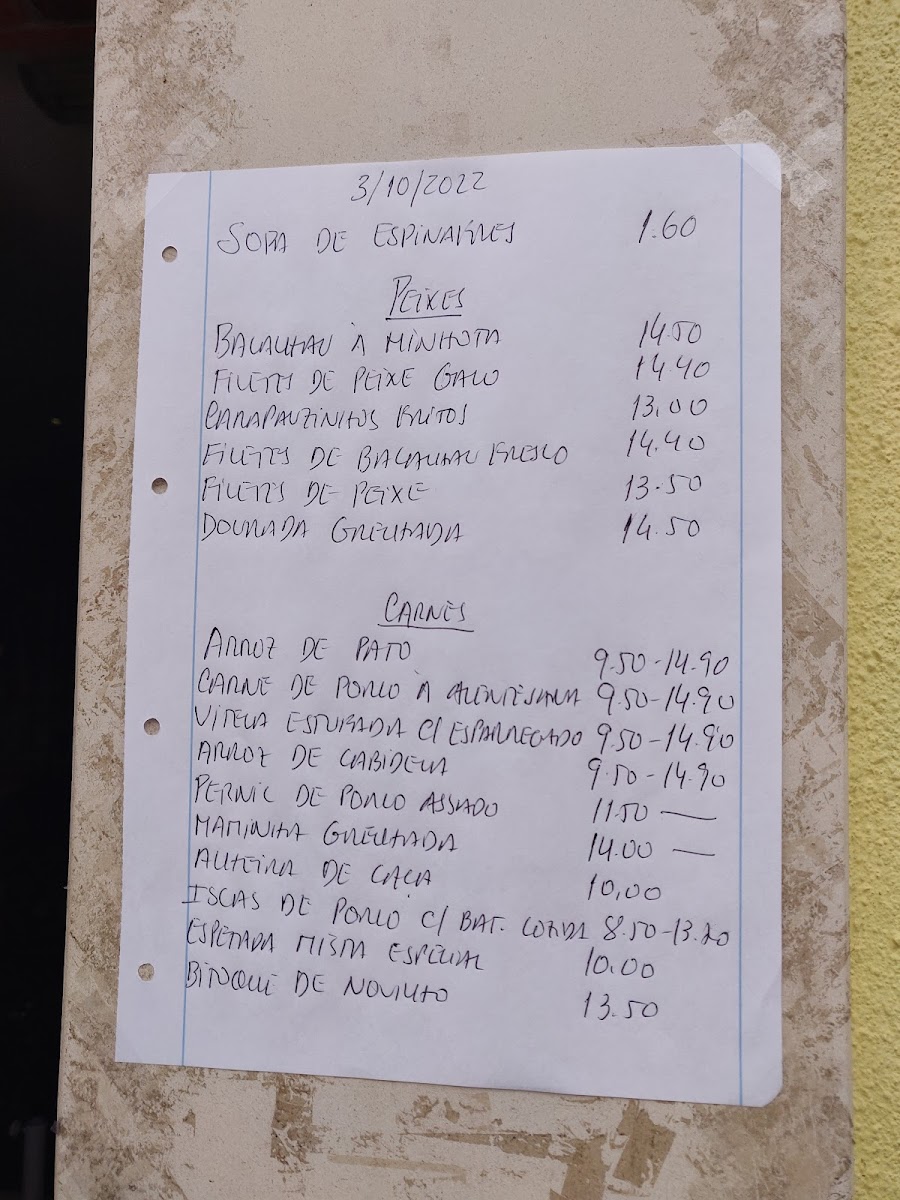 3/10/2022
SOPA DE ESPINAFRES 1.60
PEIXES
BACALHAU À MINHOTA 14.50
FILETES DE PEIXE GALO 14.40
CARAPAUZINHOS FRITOS 13.00
FILETES DE BACALHAU FRESCO 14.40
FILETES DE PEIXE 13.50
DOURADA GRELHADA 14.50
CARNES
ARROZ DE PATO 9.50-14.90
CARNE DE PORCO À ALENTEJANA 9.50-14.90
VITELA ESTUFADA C/ ESPARREGADO 9.50-14.90
ARROZ DE CABIDELA 9.50-14.90
PERNIL DE PORCO ASSADO 11.50 —
MAMINHA GRELHADA 14.00 —
ALHEIRA DE CAÇA 10,00
ISCAS DE PORCO C/ BAT. COZIDA 8.50-13.20
ESPETADA MISTA ESPECIAL 10.00
BITOQUE DE NOVILHO 13.50